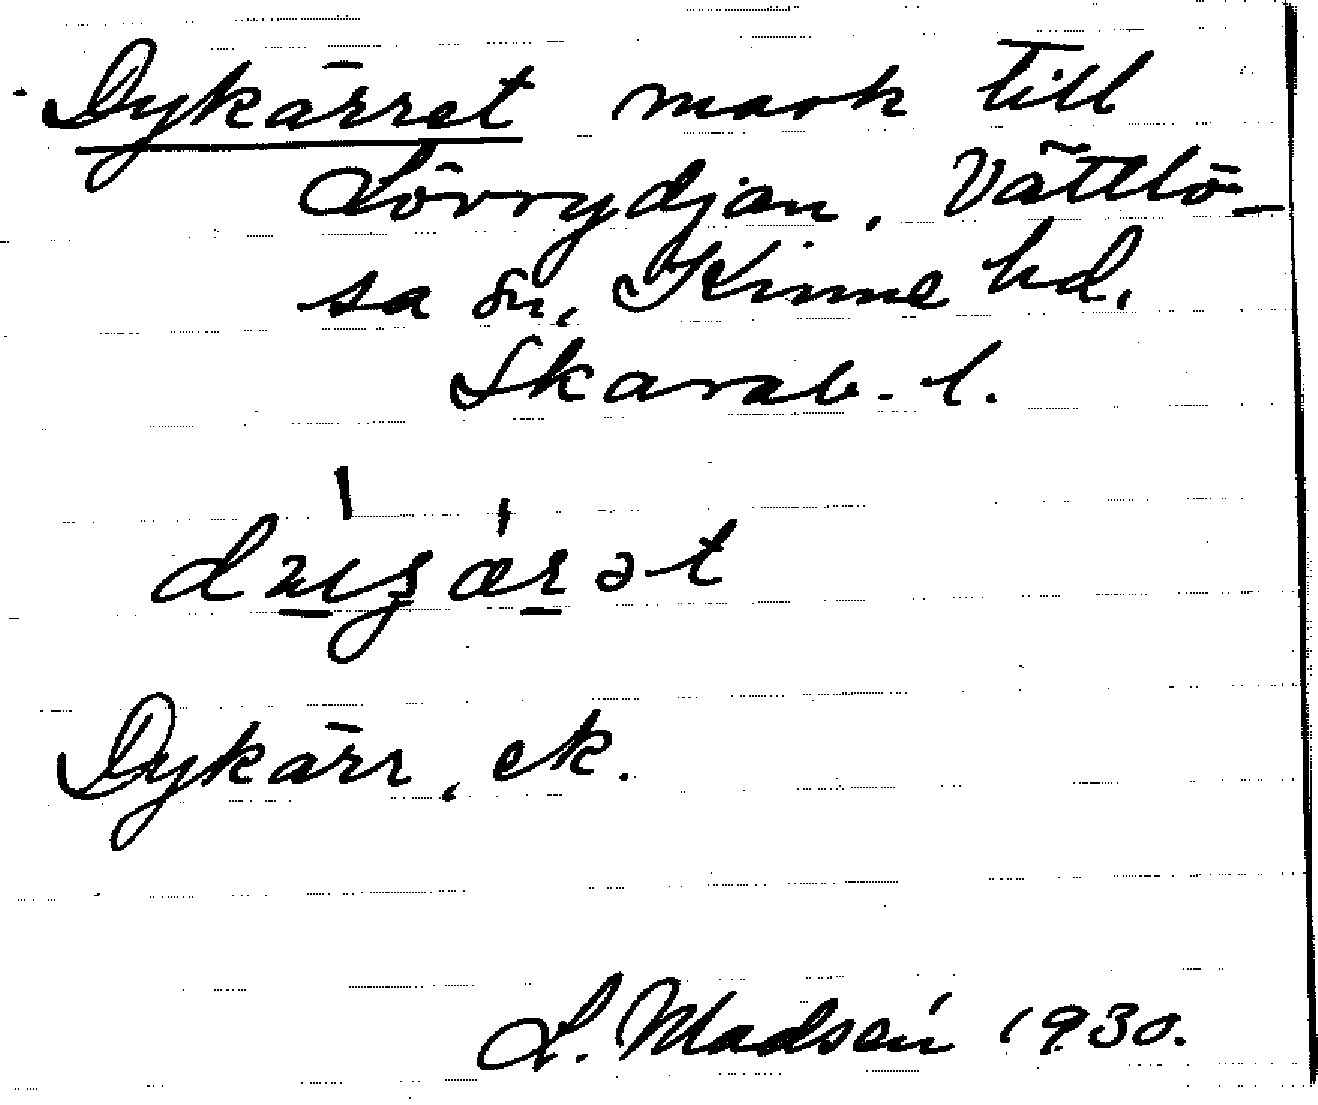 Dykärret mark till
Lövrydjan, Vättlö-
sa sn, Kinne hd,
Skarab. l.
Dykärr, ek.
L. Madsén 1930.